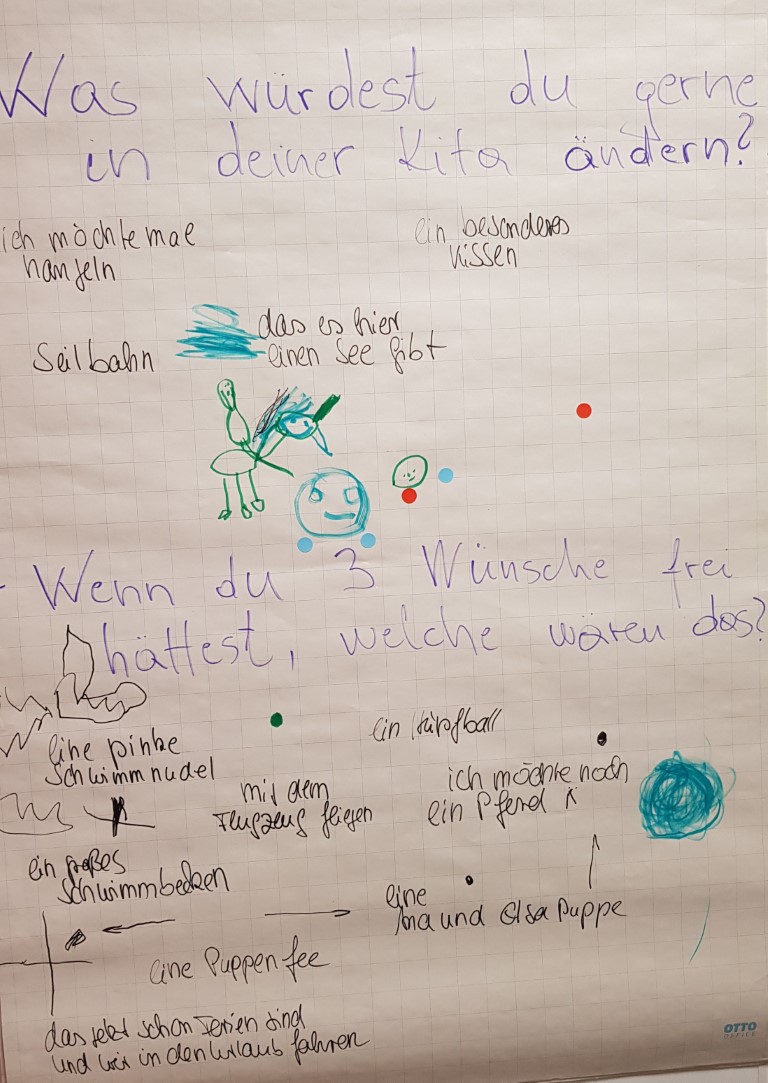 Was würdest du gerne
in deiner Kita ändern?
ich möchte mal
hangeln
ein besonderes
Kissen
Seilbahn
das es hier
einen See gibt
Wenn du 3 Wünsche frei
hättest, welche wären das?
eine pinke
Schwimmnudel
ein Hüpfball
mit dem
Flugzeug fliegen
ich möchte noch
ein Pferd
ein großes
Schwimmbecken
eine
Ana und Elsa Puppe
eine Puppenfee
das jetzt schon Ferien sind
und wir in den Urlaub fahren
OTTO
OFFICE